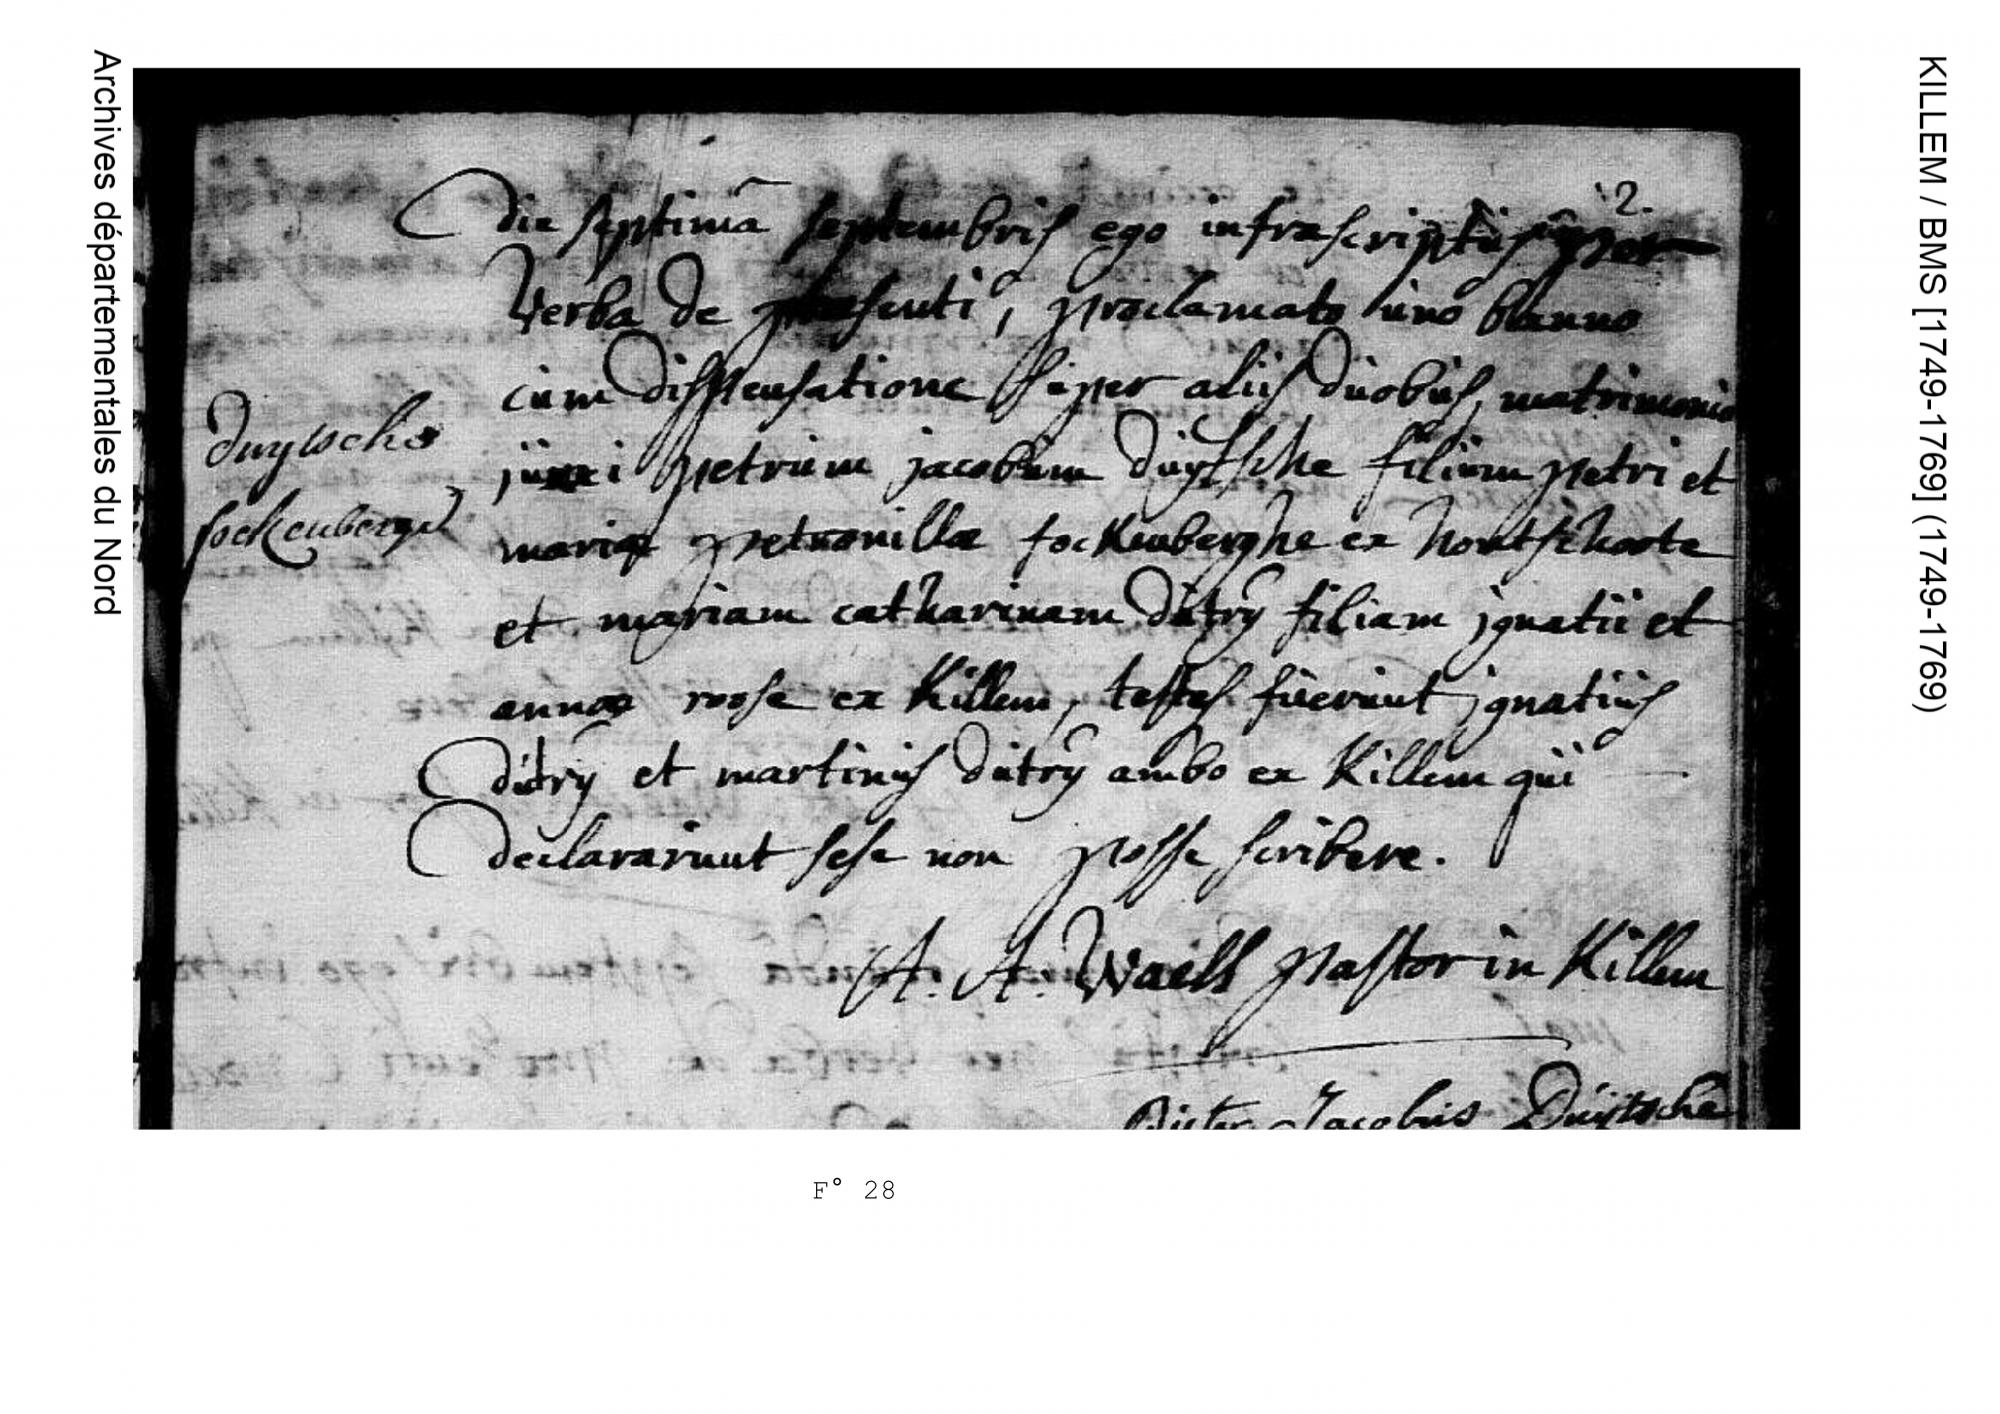 Archives départementales du Nord
KILLEM / BMS [1749-1769] (1749-1769)
2.
Die septimâ septembris ego infrascriptus per
Verba de præsenti, proclamato uno banno
cum dispensatione super aliis duobus, matrimonio
junxi petrum jacobum duytsche filium petri et
mariæ petronillæ fockenberghe ex hontschoote
et mariam catharinam dutrÿ filiam ignatii et
annæ roose ex Killem, testes fuerunt ignatius
dutrÿ et martinus dutrÿ ambo ex Killem qui
declararunt sese non posse scribere.
duytsche
fockenberge
A. A. Waell pastor in Killem
Pieter Jacobus Duÿtsche
F° 28